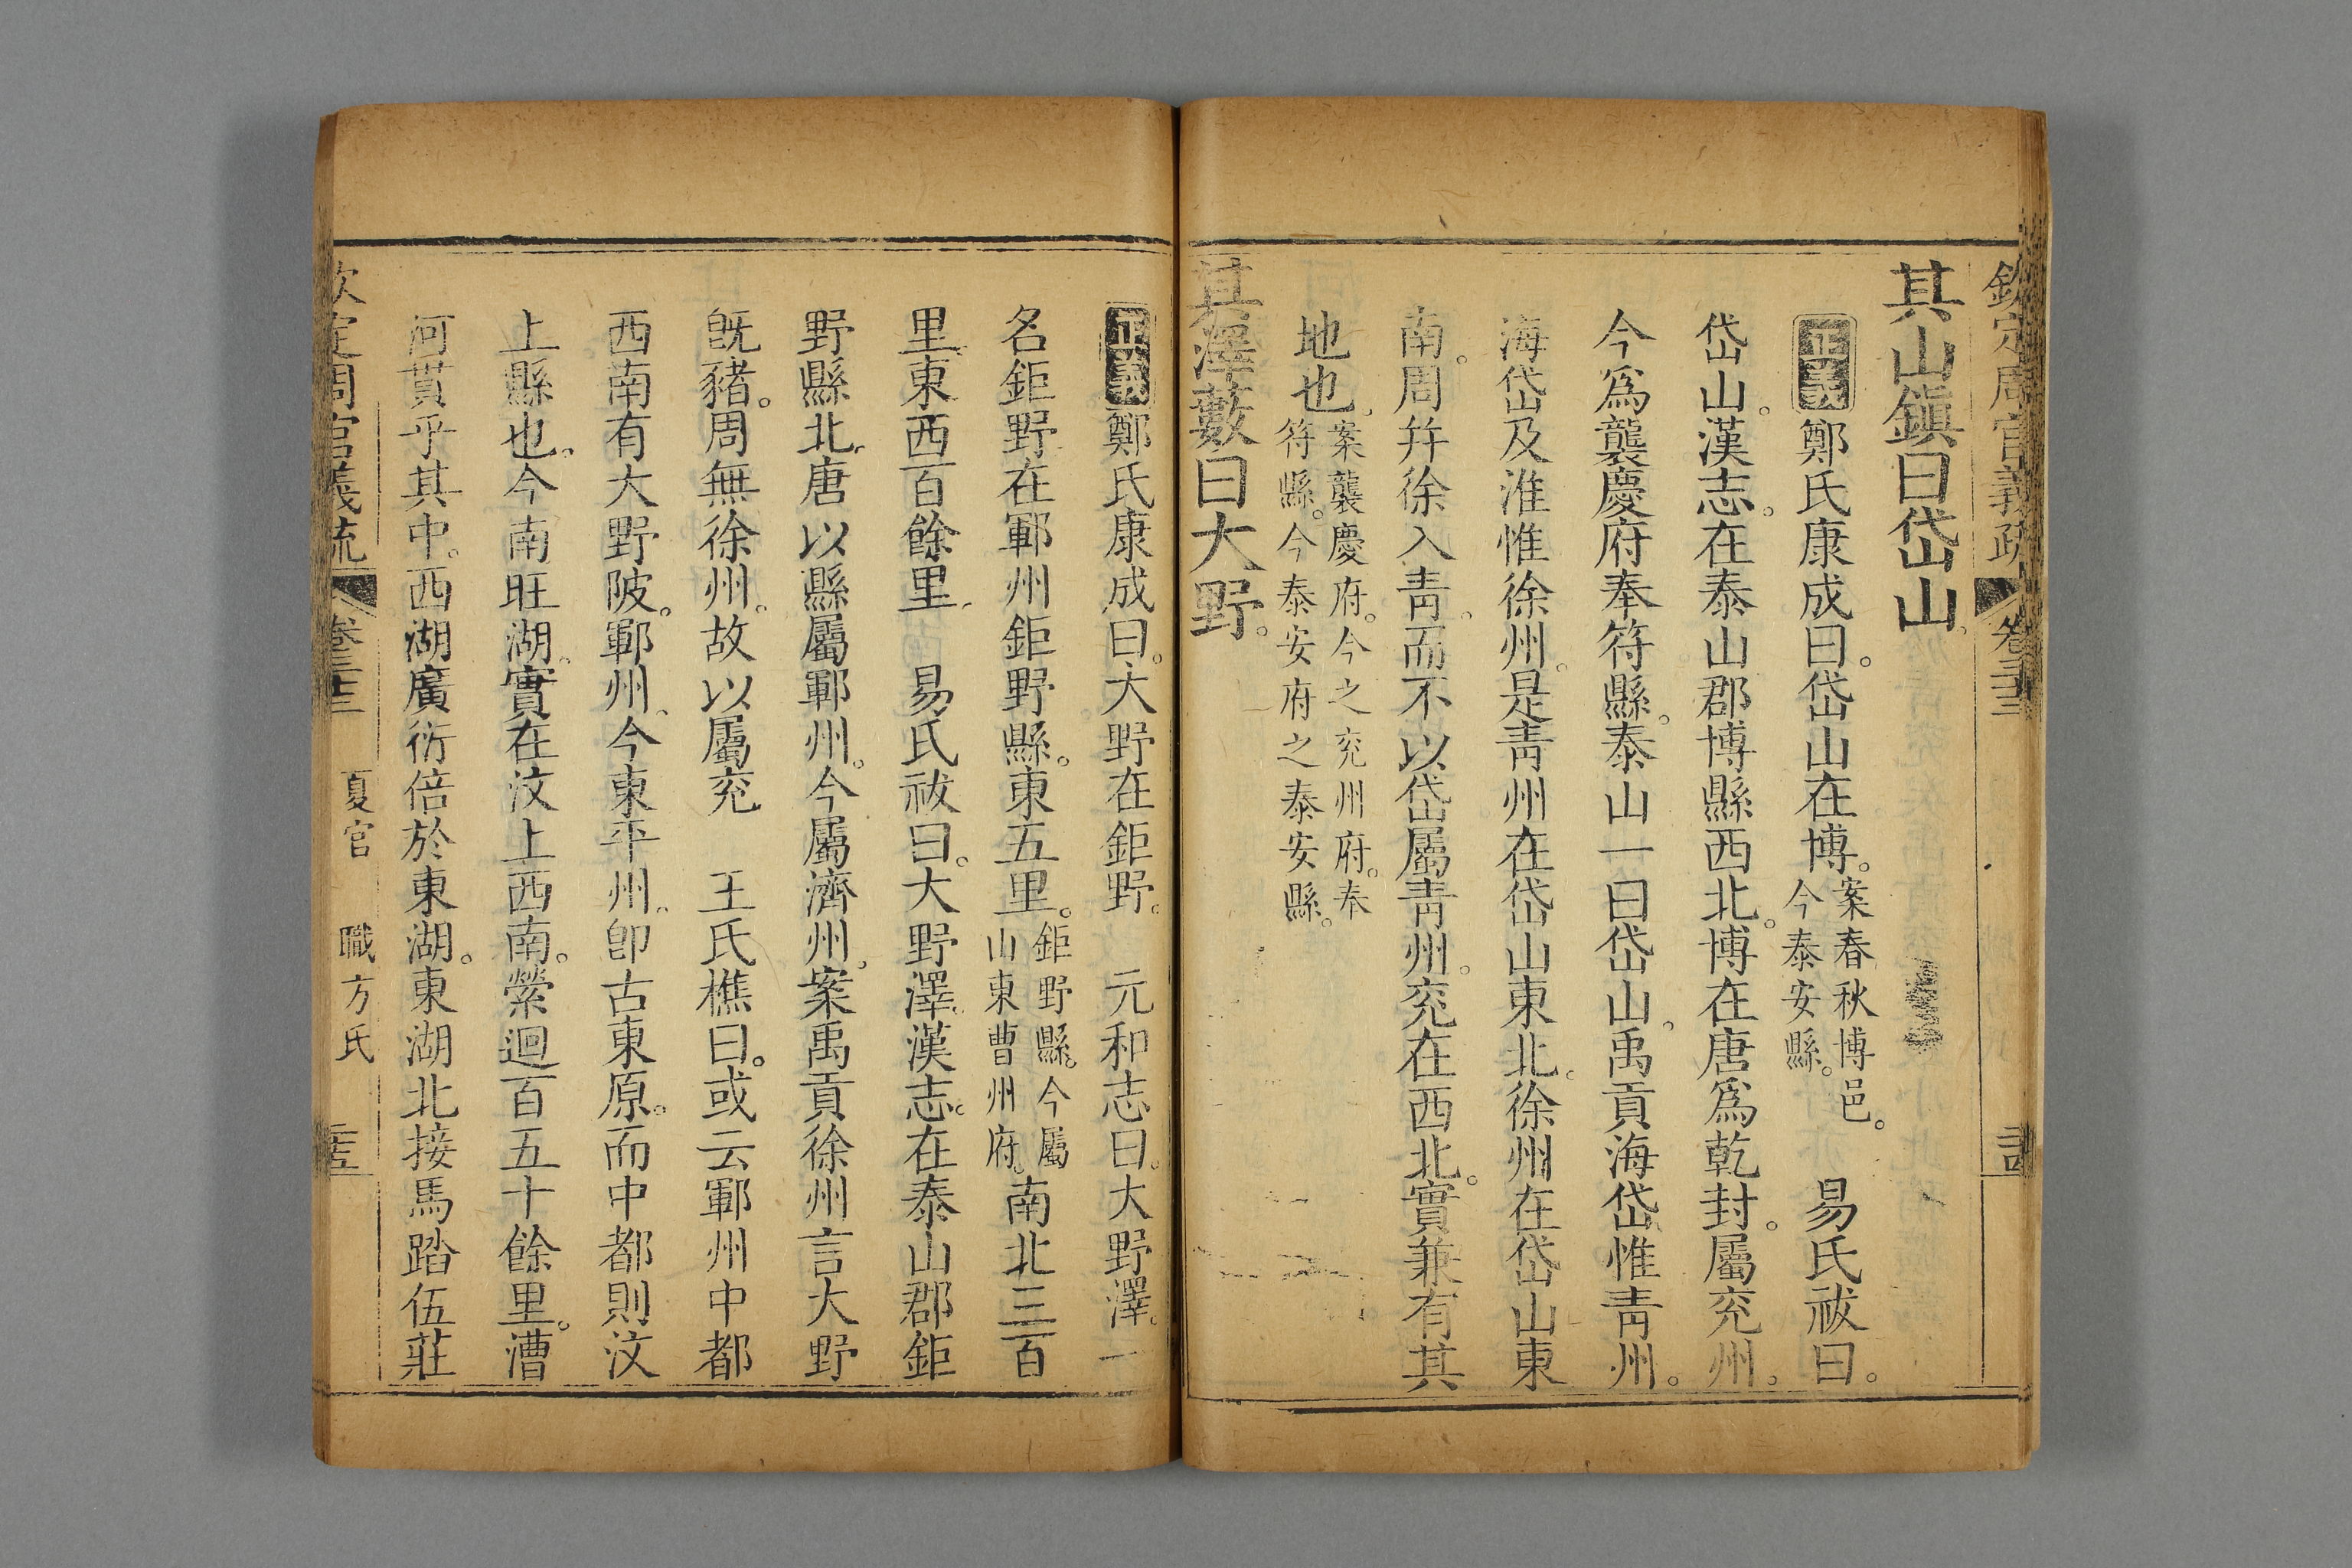 欽定周官義疏 卷三十三
其山鎮曰岱山。
正義 鄭氏康成曰。岱山在博。案春秋博邑。今泰安縣。 易氏祓曰。
岱山。漢志。在泰山郡博縣西北。博在唐爲乾封。屬兖州。
今爲襲慶府奉符縣。泰山一曰岱山。禹貢海岱惟青州。
海岱及淮惟徐州。是青州在岱山東北。徐州在岱山東
南。周并徐入青。而不以岱屬青州。兖在西北。實兼有其
地也。案襲慶府。今之兖州府。奉符縣。今泰安府之泰安縣。
其澤藪曰大野。
正義 鄭氏康成曰。大野在鉅野。 元和志曰。大野澤。一
名鉅野。在鄆州鉅野縣。東五里。鉅野縣。今屬山東曹州府。南北三百
里。東西百餘里。 易氏祓曰。大野澤。漢志。在泰山郡鉅
野縣北。唐以縣屬鄆州。今屬濟州。案禹貢徐州言大野
旣豬。周無徐州。故以屬兖 王氏樵曰。或云鄆州中都
西南有大野陂。鄆州。今東平州。卽古東原。而中都則汶
上縣也。今南旺湖。實在汶上西南。縈迴百五十餘里。漕
河貫乎其中。西湖廣衍倍於東湖。東湖北接馬踏伍莊
欽定周官義疏 卷三十三 夏官 職方氏